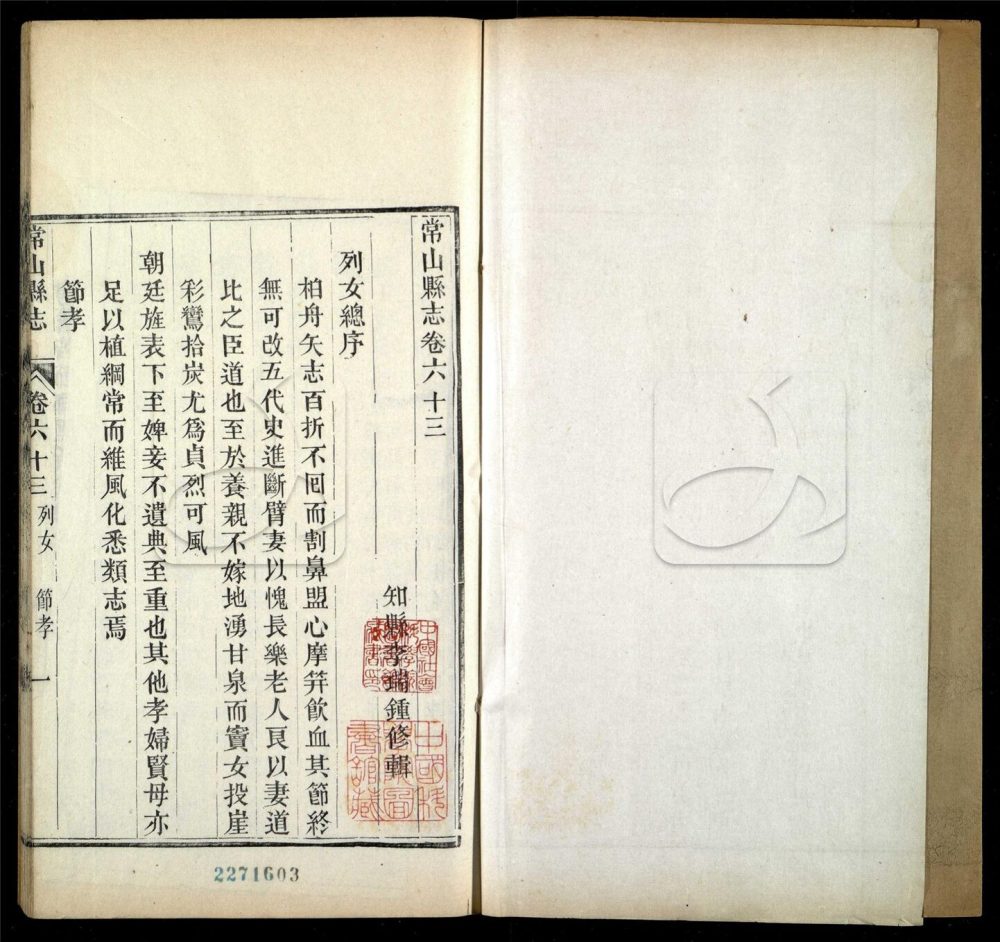 常山縣志卷六十三
知縣李瑞鍾修輯
列女總序
柏舟矢志百折不囘而割鼻盟心摩笄飮血其節終
無可改五代史進斷臂妻以愧長樂老人良以妻道
比之臣道也至於養親不嫁地湧甘泉而竇女投崖
彩鸞拾炭尤爲貞烈可風
朝廷旌表下至婢妾不遺典至重也其他孝婦賢母亦
足以植綱常而維風化悉類志焉
節孝
常山縣志 卷六十三 列女 節孝 一
2271603